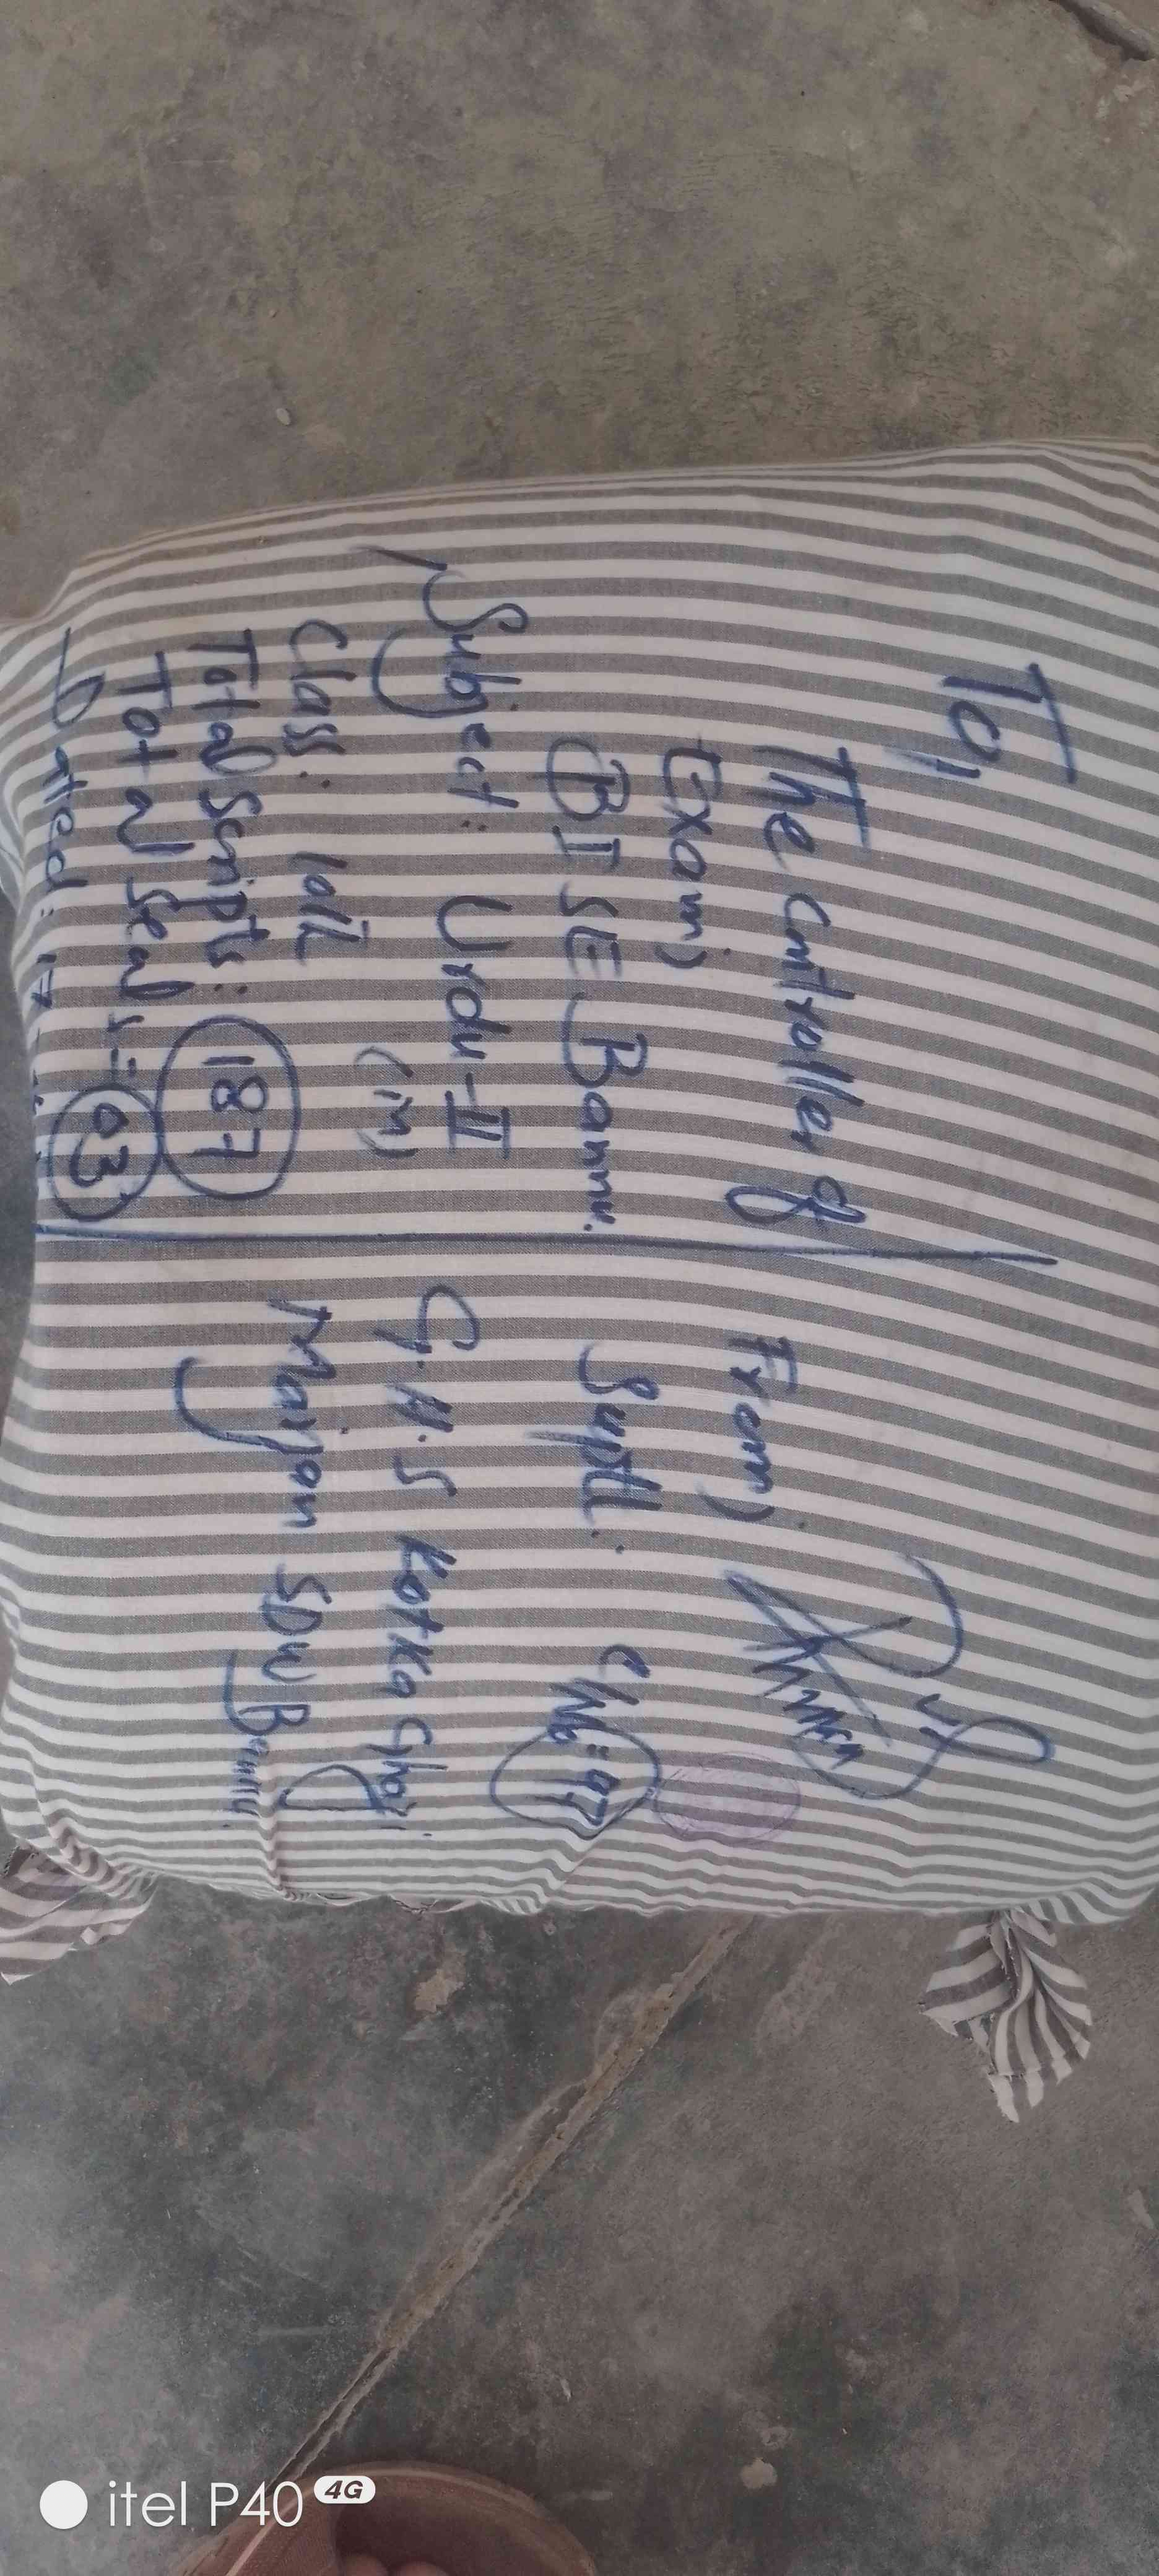 To,
The Controller of
Exam;
BISE Bannu.
Subject: Urdu-II
(M)
Class: 10th
Total Scripts: 187
Total Seal := 03
Dated: 17
From;
Suptt. C/No = 97
G.H.S Kotka Ghazi
Marjan SDW Bannu
itel P40 4G